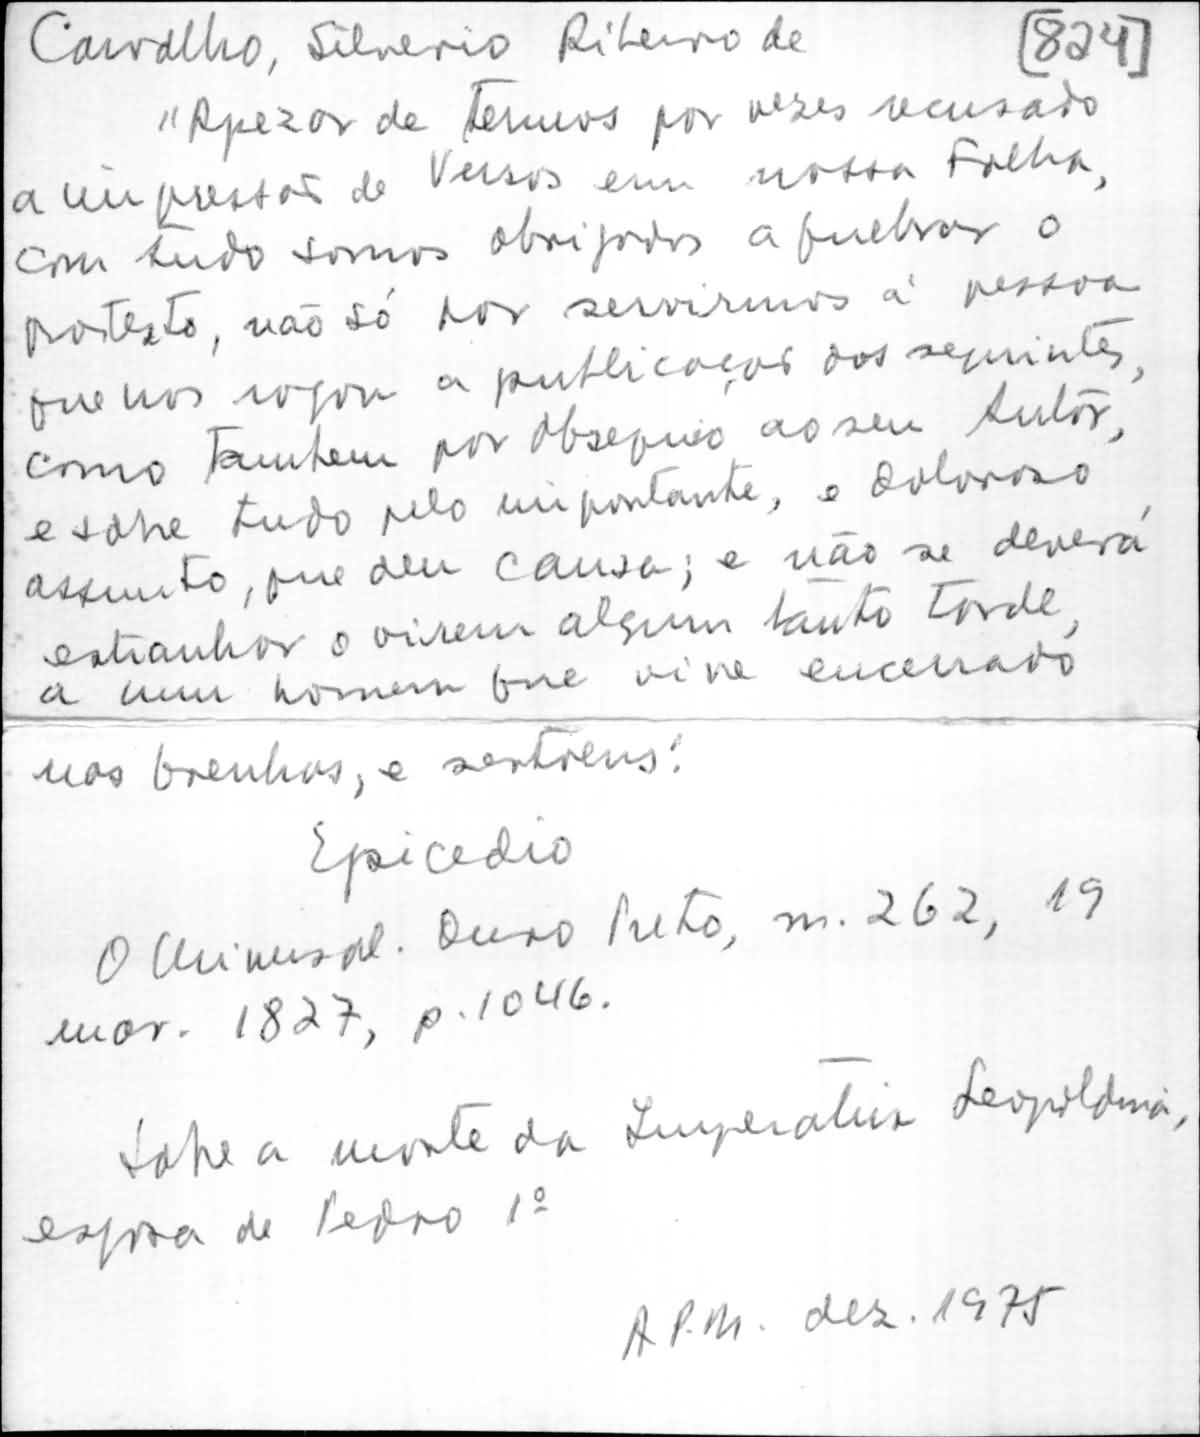 Carvalho, Silverio Ribeiro de [824]
"Apezar de termos por vezes recusado
a impressão de Versos em nossa Folha,
com tudo somos obrigados a quebrar o
protexto, não só por servirmos á pessoa
que nos rogou a publicação dos seguintes,
como tambem por obsequio ao seu Autor,
e sobre tudo pelo importante, e doloroso
assunto, que deu causa; e não se deverá
estranhar o virem algum tanto tarde,
a um homem que vive encerrado
nas brenhas, e sertoens:
Epicedio
O Universal. Ouro Preto, n. 262, 19
mar. 1827, p. 1046.
Sobre a morte da Imperatriz Leopoldina,
esposa de Pedro 1º
A.P.M. dez. 1975